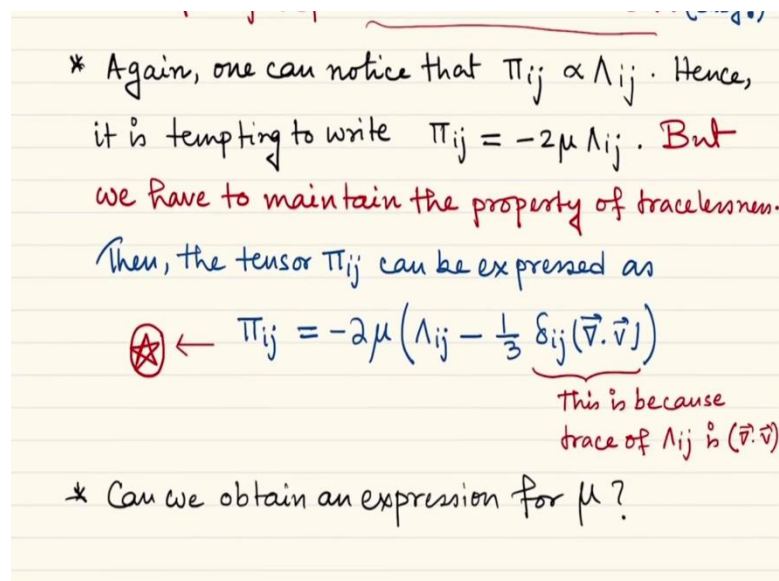 * Again, one can notice that Πij ∝ Λij. Hence,
it is tempting to write Πij = -2μ Λij. But
we have to maintain the property of tracelessness.
Then, the tensor Πij can be expressed as
☆ ← Πij = -2μ(Λij - 1/3 δij(∇⃗.v⃗))
This is because
trace of Λij is (∇⃗.v⃗)
* Can we obtain an expression for μ?